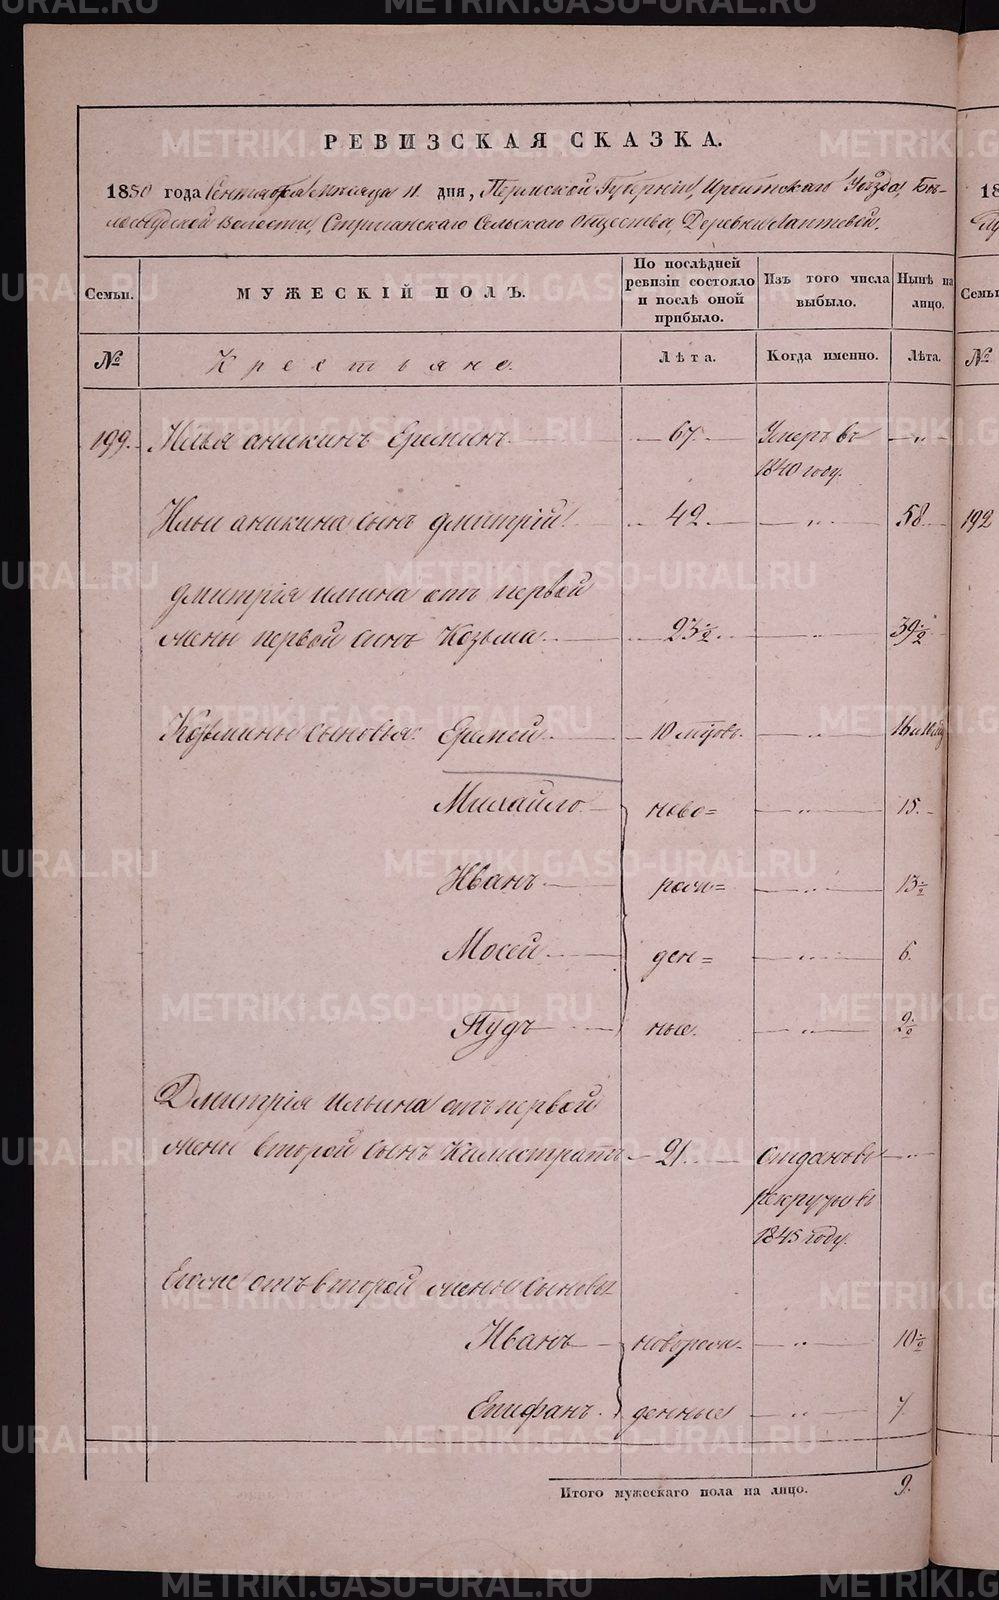 РЕВИЗСКАЯ СКАЗКА.
1850 года Сентября Месяца 11 дня, Пермской Губерніи, Ирбитскаго Уѣзда, Бѣ-
лослудской Волости, Стриганскаго Сельскаго Общества, Деревни Лаптевой.
Семьи. МУЖЕСКІЙ ПОЛЪ. По послѣдней ревизіи состояло и послѣ оной прибыло. Изъ того числа выбыло. Нынѣ на лицо.
№ Крестьяне. Лѣта. Когда именно. Лѣта.
199. Илья Аникинъ Ереминъ 67 Умеръ въ 1840 году. "
Ильи Аникина сынъ Дмитрій 42 " 58
Дмитрія Ильина отъ первой
жены первой сынъ Козьма 23½ " 39½
Козьмины сыновья: Еремей 10 мѣсов. "
Михайло ново= " 15.
Иванъ рож= " 13½
Мосей ден= " 6.
Пудъ ные. "
Дмитрія Ильина отъ первой
жены второй сынъ Калистратъ 21. Отданъ въ рекруты въ 1845 году. "
Егоже отъ второй жены сыновья
Иванъ новорож- " 10½
Епифанъ денные " 7
Итого мужескаго пола на лицо. 9.
192
METRIKI.GASO-URAL.RU